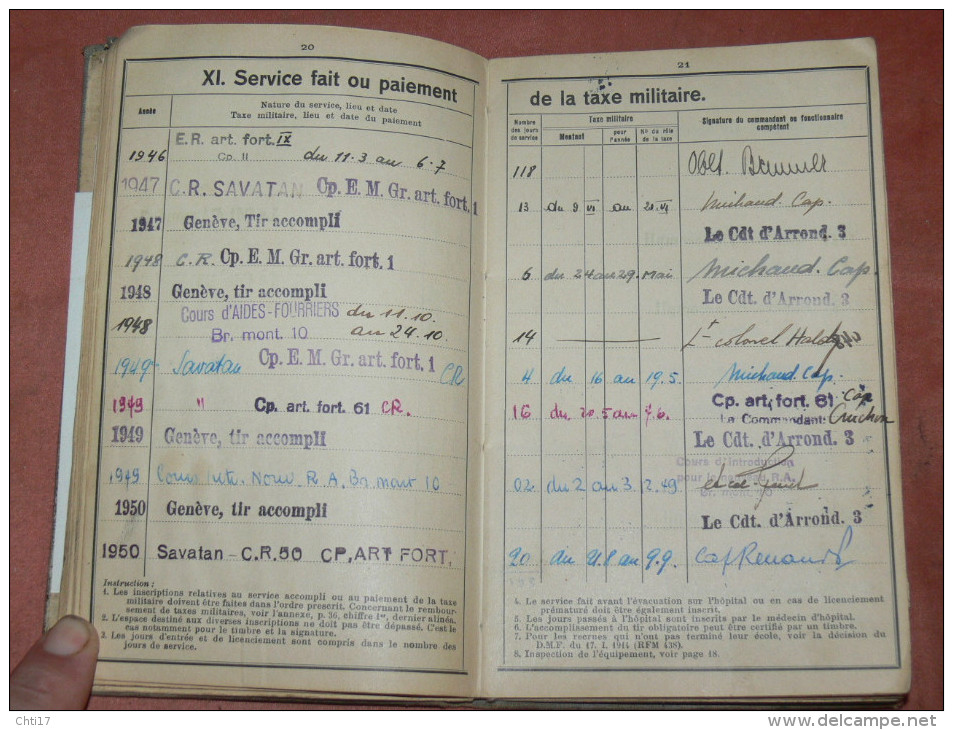 20
XI. Service fait ou paiement
Année
Nature du service, lieu et date
Taxe militaire, lieu et date du paiement
1946
E.R. art. fort. IX
Cp. II du 11.3 au 6.7
1947 C.R. SAVATAN Cp. E. M. Gr. art. fort. 1
1947 Genève, Tir accompli
1948 C.R. Cp. E. M. Gr. art. fort. 1
1948 Genève, tir accompli
1948 Cours d'AIDES-FOURRIERS du 11.10.
Br. mont. 10 au 24.10.
1949 Savatan Cp. E. M. Gr. art. fort. 1 CR
1949 " Cp. art. fort. 61 CR.
1949 Genève, tir accompli
1949 Cours Nouv. R.A. Br mont 10
1950 Genève, tir accompli
1950 Savatan - C.R. 50 CP, ART FORT.
Instruction :
1. Les inscriptions relatives au service accompli ou au paiement de la taxe
militaire doivent être faites dans l'ordre prescrit. Concernant le rembour-
sement de taxes militaires, voir l'annexe, p. 36, chiffre 1er, dernier alinéa.
2. L'espace destiné aux diverses inscriptions ne doit pas être dépassé. C'est le
cas notamment pour le timbre et la signature.
3. Les jours d'entrée et de licenciement sont compris dans le nombre des
jours de service.
21
de la taxe militaire.
Nombre
des jours
de service
Taxe militaire
Montant
pour
l'année
No du rôle
de la taxe
Signature du commandant ou fonctionnaire
compétent
118 Oblt.
13 du 9 VI au 21. VI Michaud. Cap.
Le Cdt d'Arrond. 3
6 du 24 au 29. Mai Michaud. Cap.
Le Cdt. d'Arrond. 3
14 Lt colonel
4 du 16 au 19.5. Michaud. Cap.
16 du 20.5 au 4.6. Cp. art. fort. 61 Cap
Le Commandant:
Le Cdt. d'Arrond. 3
Cours d'Introduction
pour le nouveau R.A.
Br. mont. 10
02 du 2 au 3. 2.49
Le Cdt. d'Arrond. 3
20 du 21.8 au 9.9. Cap Renaud
4. Le service fait avant l'évacuation sur l'hôpital ou en cas de licenciement
prématuré doit être également inscrit.
5. Les jours passés à l'hôpital sont inscrits par le médecin d'hôpital.
6. L'accomplissement du tir obligatoire peut être certifié par un timbre.
7. Pour les recrues qui n'ont pas terminé leur école, voir la décision du
D.M.F. du 17. I. 1944 (RFM 438).
8. Inspection de l'équipement, voir page 18.
Chti17
www.delcampe.net